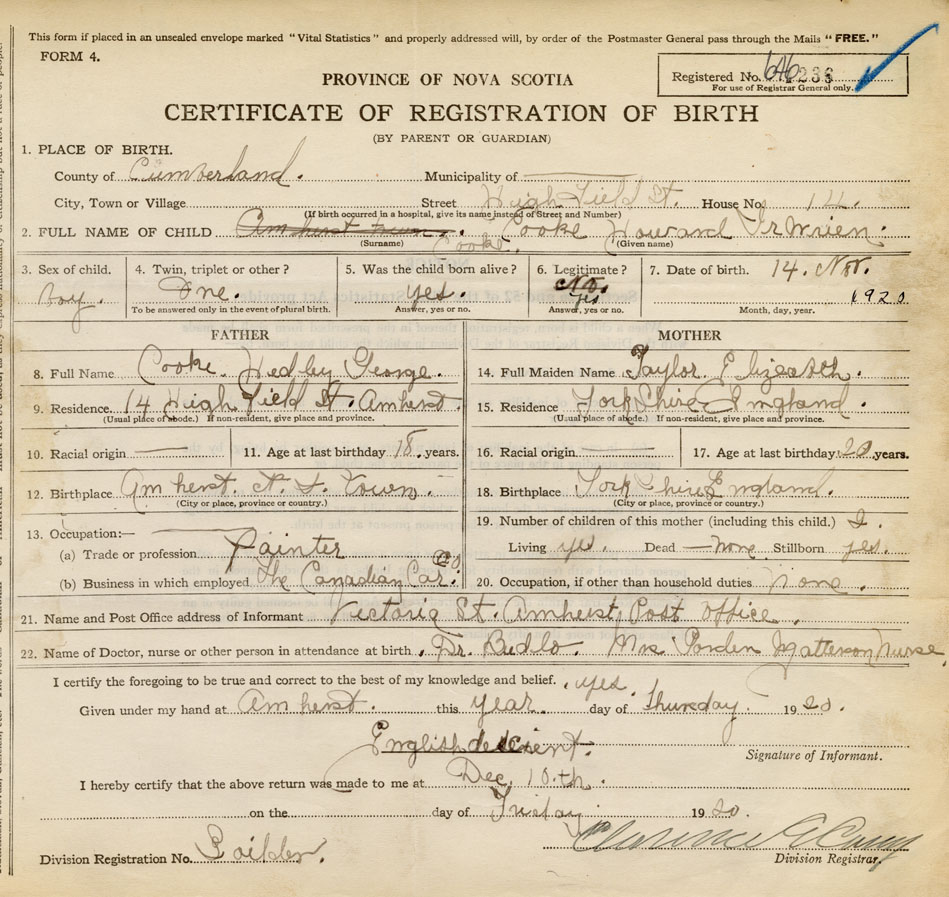 This form if placed in an unsealed envelope marked "Vital Statistics" and properly addressed will, by order of the Postmaster General pass through the Mails "FREE."
FORM 4.
Registered No. 236
For use of Registrar General only.
PROVINCE OF NOVA SCOTIA
CERTIFICATE OF REGISTRATION OF BIRTH
(BY PARENT OR GUARDIAN)
1. PLACE OF BIRTH.
County of Cumberland. Municipality of
City, Town or Village Street High Field St. House No. 14.
(If birth occurred in a hospital, give its name instead of Street and Number)
2. FULL NAME OF CHILD Amherst town. Cooke Howard
(Surname) Cooke. (Given name)
3. Sex of child. 4. Twin, triplet or other? 5. Was the child born alive? 6. Legitimate? 7. Date of birth. 14. Nov.
boy. One. yes. No. yes 1920
To be answered only in the event of plural birth. Answer, yes or no. Answer, yes or no. Month, day, year.
FATHER MOTHER
8. Full Name Cooke. Hedley George. 14. Full Maiden Name Taylor. Elizeabth.
9. Residence. 14 High Field St. Amherst. 15. Residence YorkShire England.
(Usual place of abode.) If non-resident, give place and province. (Usual place of abode.) If non-resident, give place and province.
10. Racial origin 11. Age at last birthday 18. years. 16. Racial origin 17. Age at last birthday 20 years.
12. Birthplace Amherst. N. S. Town. 18. Birthplace YorkShire England.
(City or place, province or country.) (City or place, province or country.)
13. Occupation:— 19. Number of children of this mother (including this child.)
(a) Trade or profession Painter Living yes. Dead none Stillborn yes.
(b) Business in which employed The Canadian Car. Co. 20. Occupation, if other than household duties None
21. Name and Post Office address of Informant Victoria St. Amherst Post office.
22. Name of Doctor, nurse or other person in attendance at birth. Dr. Mrs Nurse
I certify the foregoing to be true and correct to the best of my knowledge and belief. yes.
Given under my hand at Amherst. this year. day of thursday. 1920.
English decient.
Signature of Informant.
I hereby certify that the above return was made to me at Dec. 10.th.
on the day of Friday 1920.
Division Registration No.
Division Registrar.